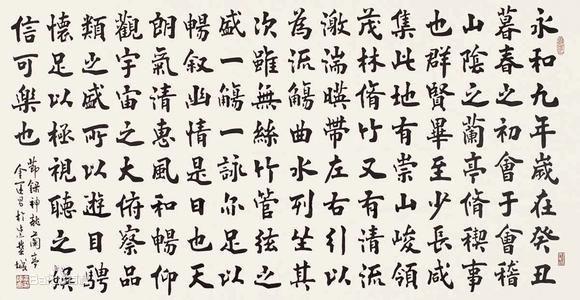 永和九年歲在癸丑
暮春之初會于會稽
山陰之蘭亭脩禊事
也群賢畢至少長咸
集此地有崇山峻領
茂林脩竹又有清流
激湍暎帶左右引以
為流觴曲水列坐其
次雖無絲竹管弦之
盛一觴一詠亦足以
暢叙幽情是日也天
朗氣清惠風和暢仰
觀宇宙之大俯察品
類之盛所以遊目騁
懷足以極視聽之娛
信可樂也
節錄神龍蘭亭
金運昌於